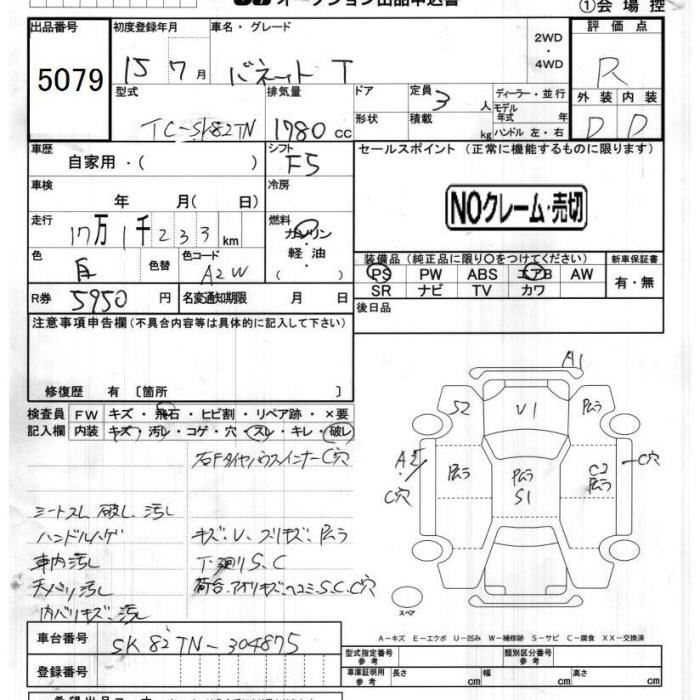 オークション出品申込書
①会場控
出品番号 初度登録年月 車名・グレード 2WD・4WD 評価点
5079 15 7月 バネット T R
型式 排気量 ドア 定員 3人 ディーラー・並行 外装 内装
TC-SK82TN 1780cc 形状 積載 kg モデル年式 年式 ハンドル 左・右 D D
車歴 自家用・( ) シフト F5 セールスポイント (正常に機能するものに限ります)
車検 年 月( 日) 冷房
NOクレーム・売切
走行 17万1千233km 燃料 ガソリン・軽油
色 白 色替 色コード A2W ( )
装備品 (純正品に限り○をつけてください) 新車保証書
PS PW ABS エアB AW 有・無
SR ナビ TV カワ
R券 5950円 名変通知期限 月 日 後日品
注意事項申告欄(不具合内容等は具体的に記入して下さい)
修復歴 有〔箇所 〕
検査員 FW キズ・飛石・ヒビ割・リペア跡・×要
記入欄 内装 キズ・汚レ・コゲ・穴・スレ・キレ・破レ
右FタイヤハウスインナーC穴
シートスレ 破レ 汚レ
ハンドルハゲ キズ、U、スリキズ、ムラ
車内汚レ 下廻りS、C
天バリ汚レ 荷台、アオリキズ、ヘコミ、S、C、C穴
内バリキズ、汚レ
A1
S2 U1 ムラ
A2 C穴 ムラ ムラ S1 C2 ムラ C穴
スペア
A-キズ E-エクボ U-凹み W-補修跡 S-サビ C-腐食 XX-交換済
車台番号 SK82TN-304875
型式指定番号 参考 類別区分番号 参考
登録番号
車庫証明用 参考 長さ cm 幅 cm 高さ cm